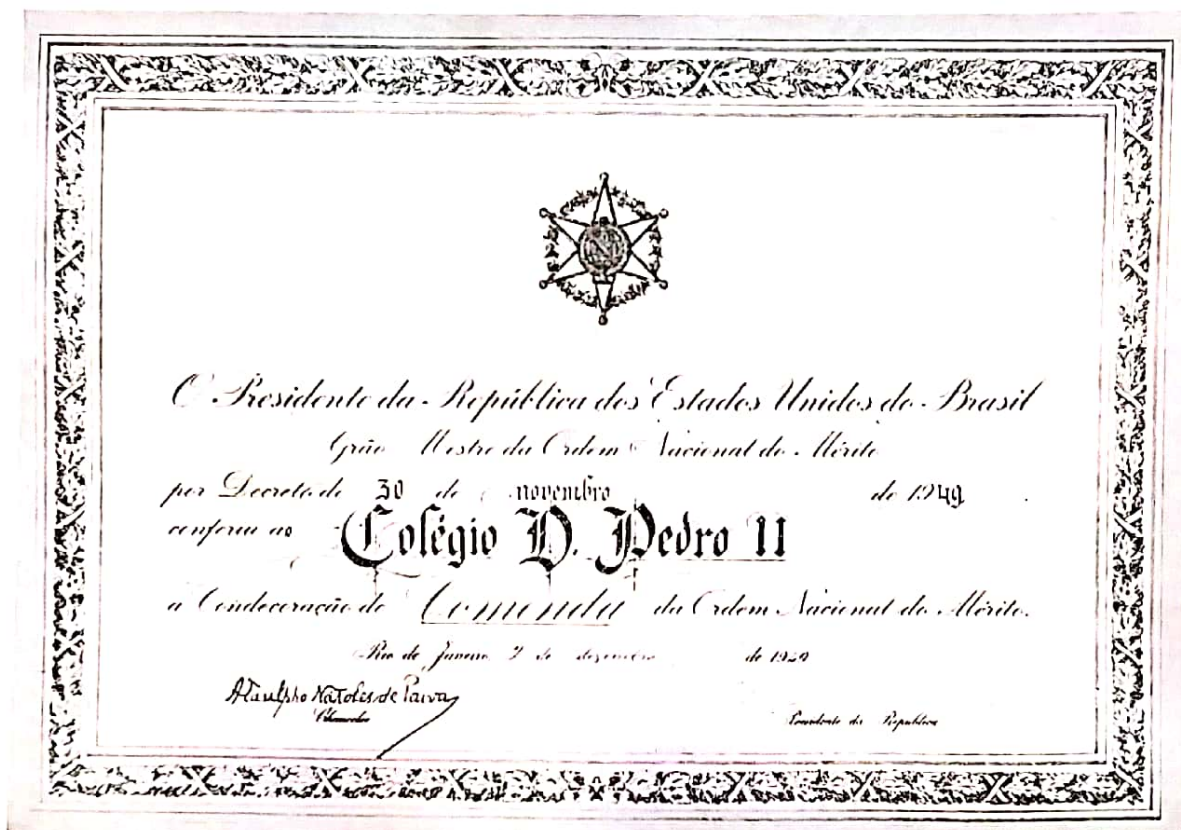 O Presidente da República dos Estados Unidos do Brasil
Grão Mestre da Ordem Nacional do Mérito
por Decreto de 30 de novembro de 1949
conferiu ao Colégio D. Pedro II
a Condecoração de Comenda da Ordem Nacional do Mérito.
Rio de Janeiro, 2 de dezembro de 1949
Ataulpho Napoles de Paiva
Chanceler
Presidente da República